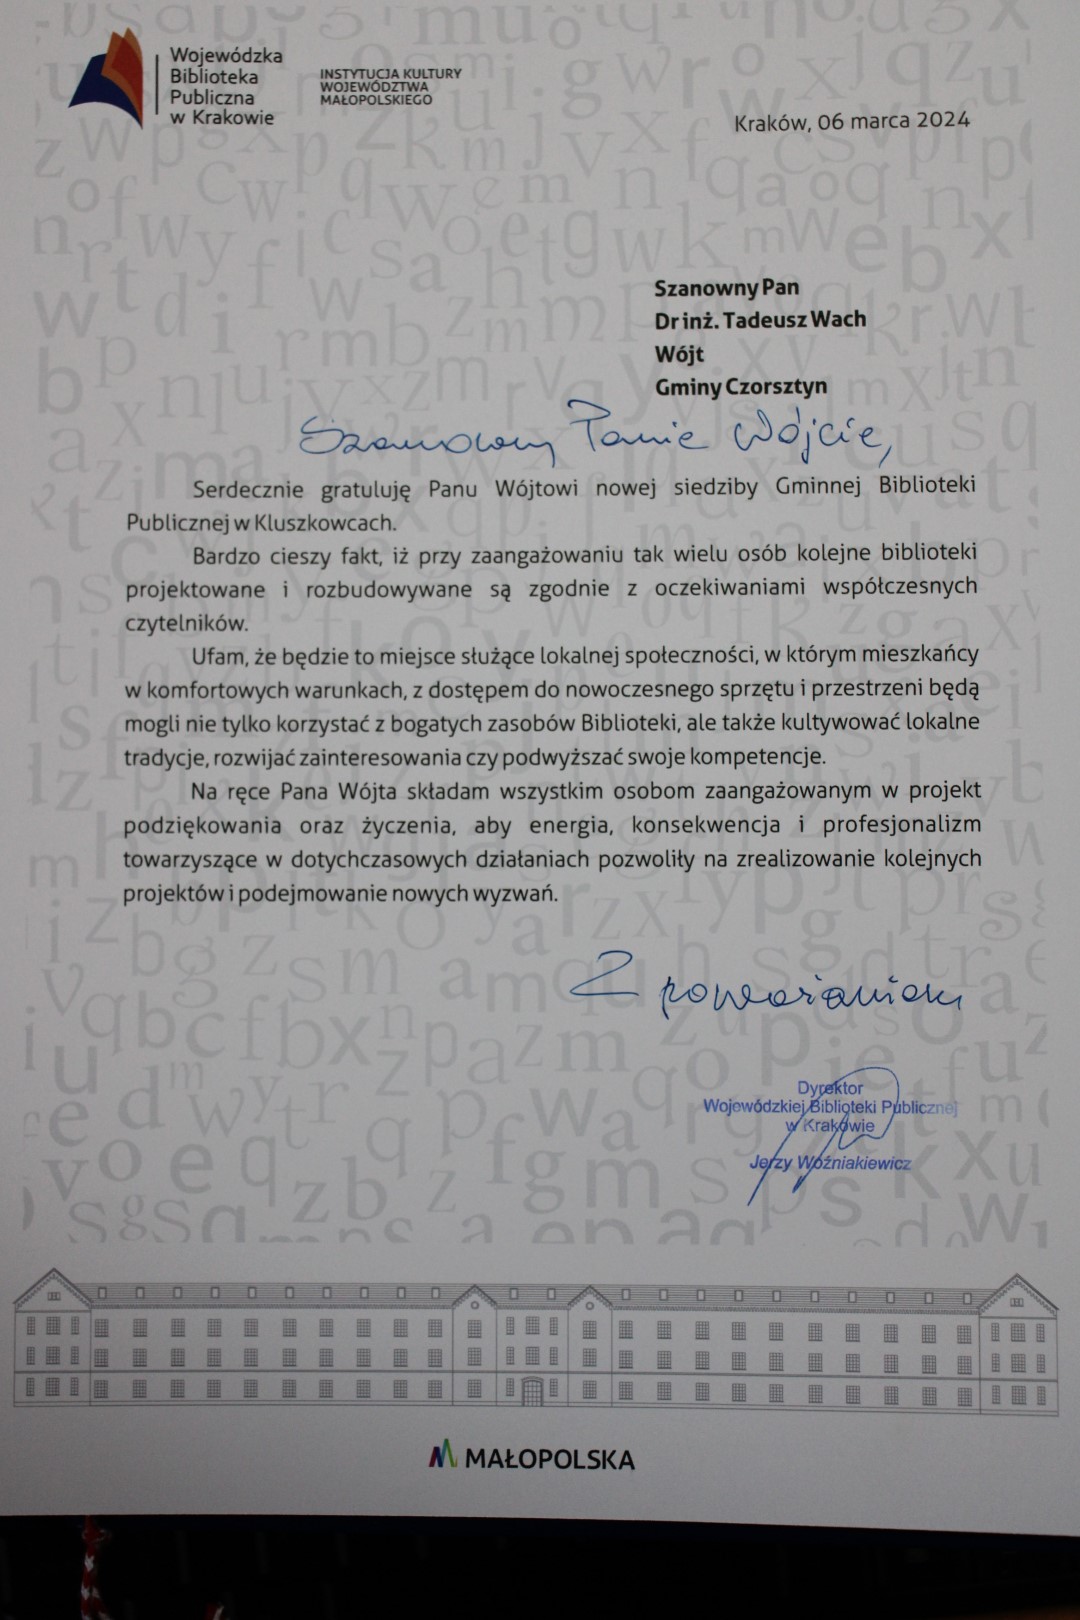 Wojewódzka
Biblioteka
Publiczna
w Krakowie
INSTYTUCJA KULTURY
WOJEWÓDZTWA
MAŁOPOLSKIEGO
Kraków, 06 marca 2024
Szanowny Pan
Dr inż. Tadeusz Wach
Wójt
Gminy Czorsztyn
Szanowny Panie Wójcie,
Serdecznie gratuluję Panu Wójtowi nowej siedziby Gminnej Biblioteki
Publicznej w Kluszkowcach.
Bardzo cieszy fakt, iż przy zaangażowaniu tak wielu osób kolejne biblioteki
projektowane i rozbudowywane są zgodnie z oczekiwaniami współczesnych
czytelników.
Ufam, że będzie to miejsce służące lokalnej społeczności, w którym mieszkańcy
w komfortowych warunkach, z dostępem do nowoczesnego sprzętu i przestrzeni będą
mogli nie tylko korzystać z bogatych zasobów Biblioteki, ale także kultywować lokalne
tradycje, rozwijać zainteresowania czy podwyższać swoje kompetencje.
Na ręce Pana Wójta składam wszystkim osobom zaangażowanym w projekt
podziękowania oraz życzenia, aby energia, konsekwencja i profesjonalizm
towarzyszące w dotychczasowych działaniach pozwoliły na zrealizowanie kolejnych
projektów i podejmowanie nowych wyzwań.
Z poważaniem
Dyrektor
Wojewódzkiej Biblioteki Publicznej
w Krakowie
Jerzy Woźniakiewicz
MAŁOPOLSKA